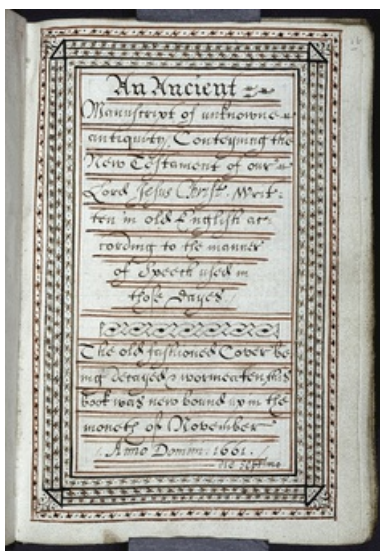 An Ancient
Manuscript of unknowne
antiquity. Conteyning the
New Testament of our
Lord Jesus Christ. Writ-
ten in old English ac-
cording to the manner
of Speech used in
those dayes.
The old fashioned Cover be
ing decayed & wormeaten, this
book was new bound up in the
moneth of November
Anno Domini. 1661.
die septimo